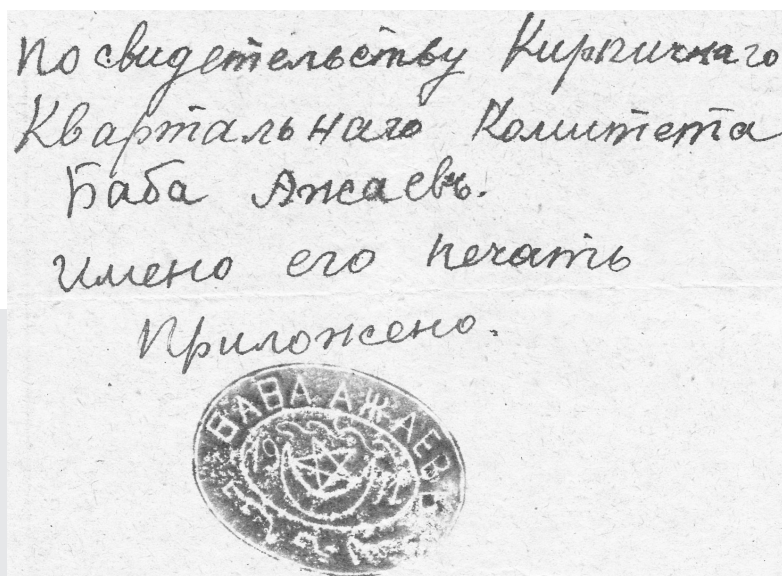 по свидетельству Кирпичнаго
Квартальнаго Комитета
Баба Ажаевъ.
имено его печать
Приложено.
БАБА АЖАЕВ
19